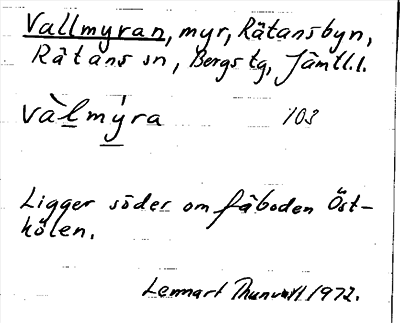 Vallmyran, myr, Rätansbyn,
Rätans sn, Bergs tg, Jämtl.l.
vàl̲mý̲ra 103
Ligger söder om fäboden Öst-
hölen.
Lennart Thunvall 1972.